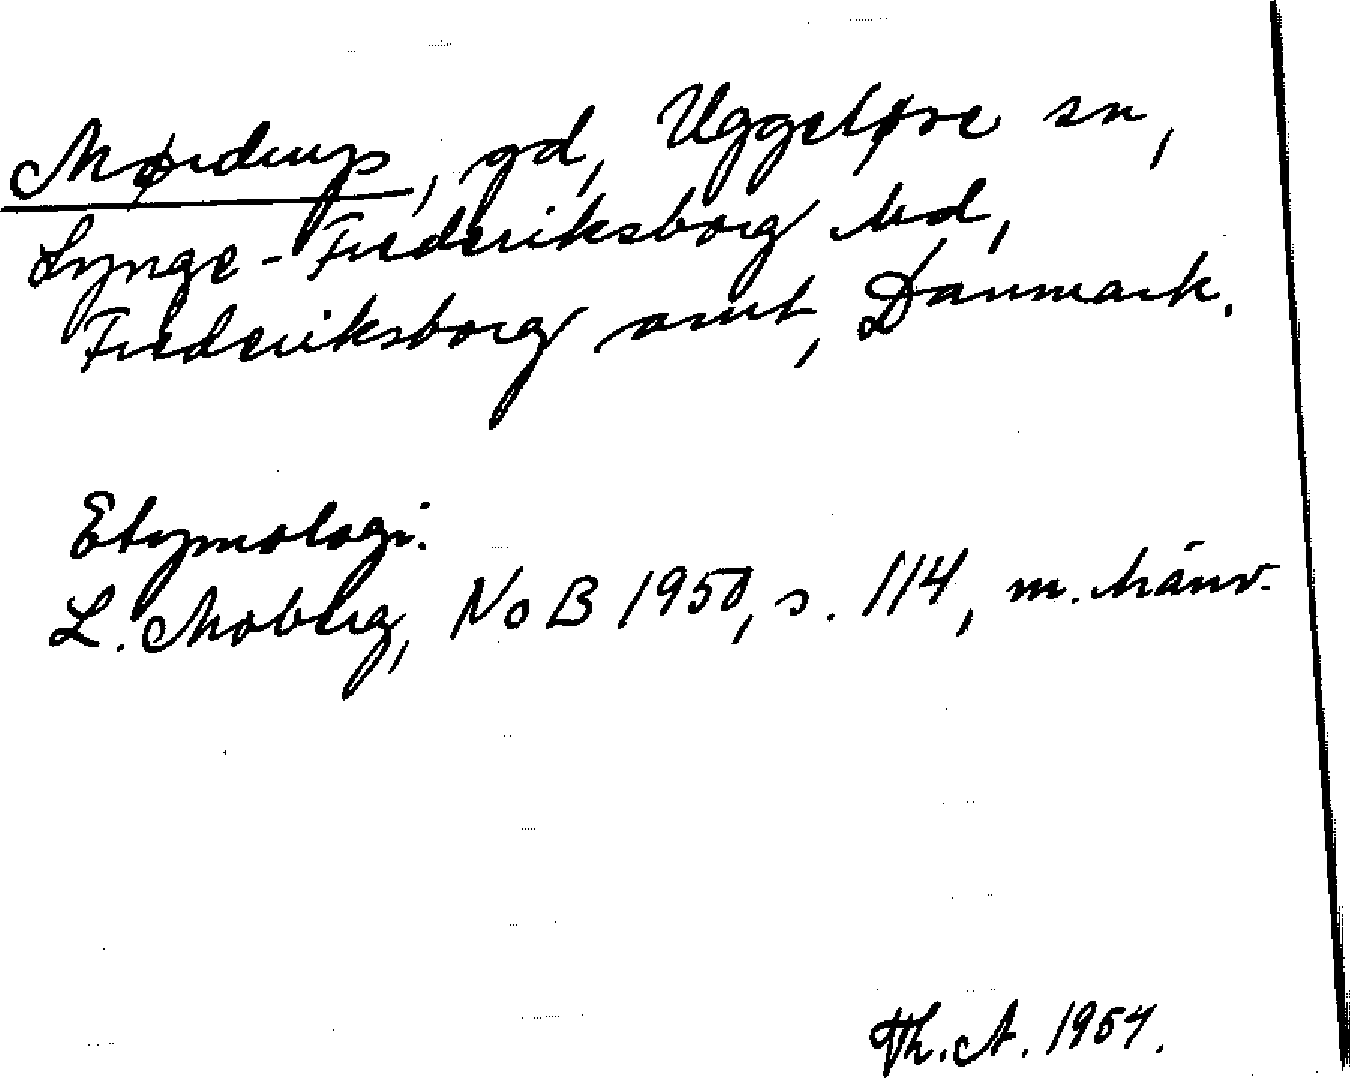 Mørdrup, gd, Uggeløse sn,
Lynge-Frederiksborg hd,
Frederiksborg amt, Danmark.
Etymologi.
L. Moberg, NoB 1950, s. 114, m. hänv.
Th. A. 1954.